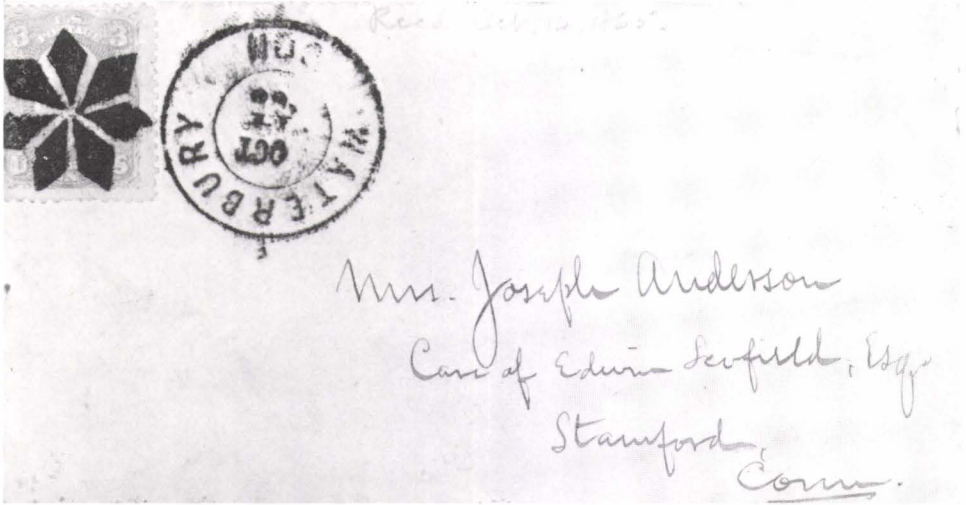 Recd Oct, 12, 1865.
3 3
WATERBURY CON
OCT
Mrs. Joseph Anderson
Care of Edwin Scofield, Esq.
Stamford,
Conn.